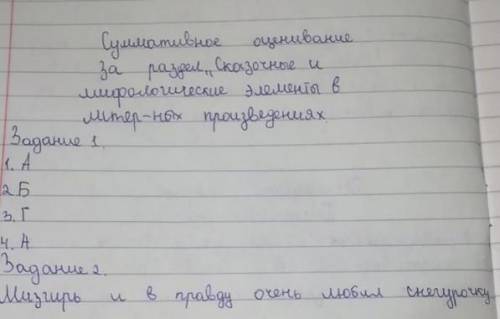 Суммативное оценивание
за раздел „Сказочные и
мифологические элементы в
литер-ных произведениях
Задание 1.
1. А
2 Б
3. Г
4. А
Задание 2.
Мизгирь и в правду очень любил снегурочку